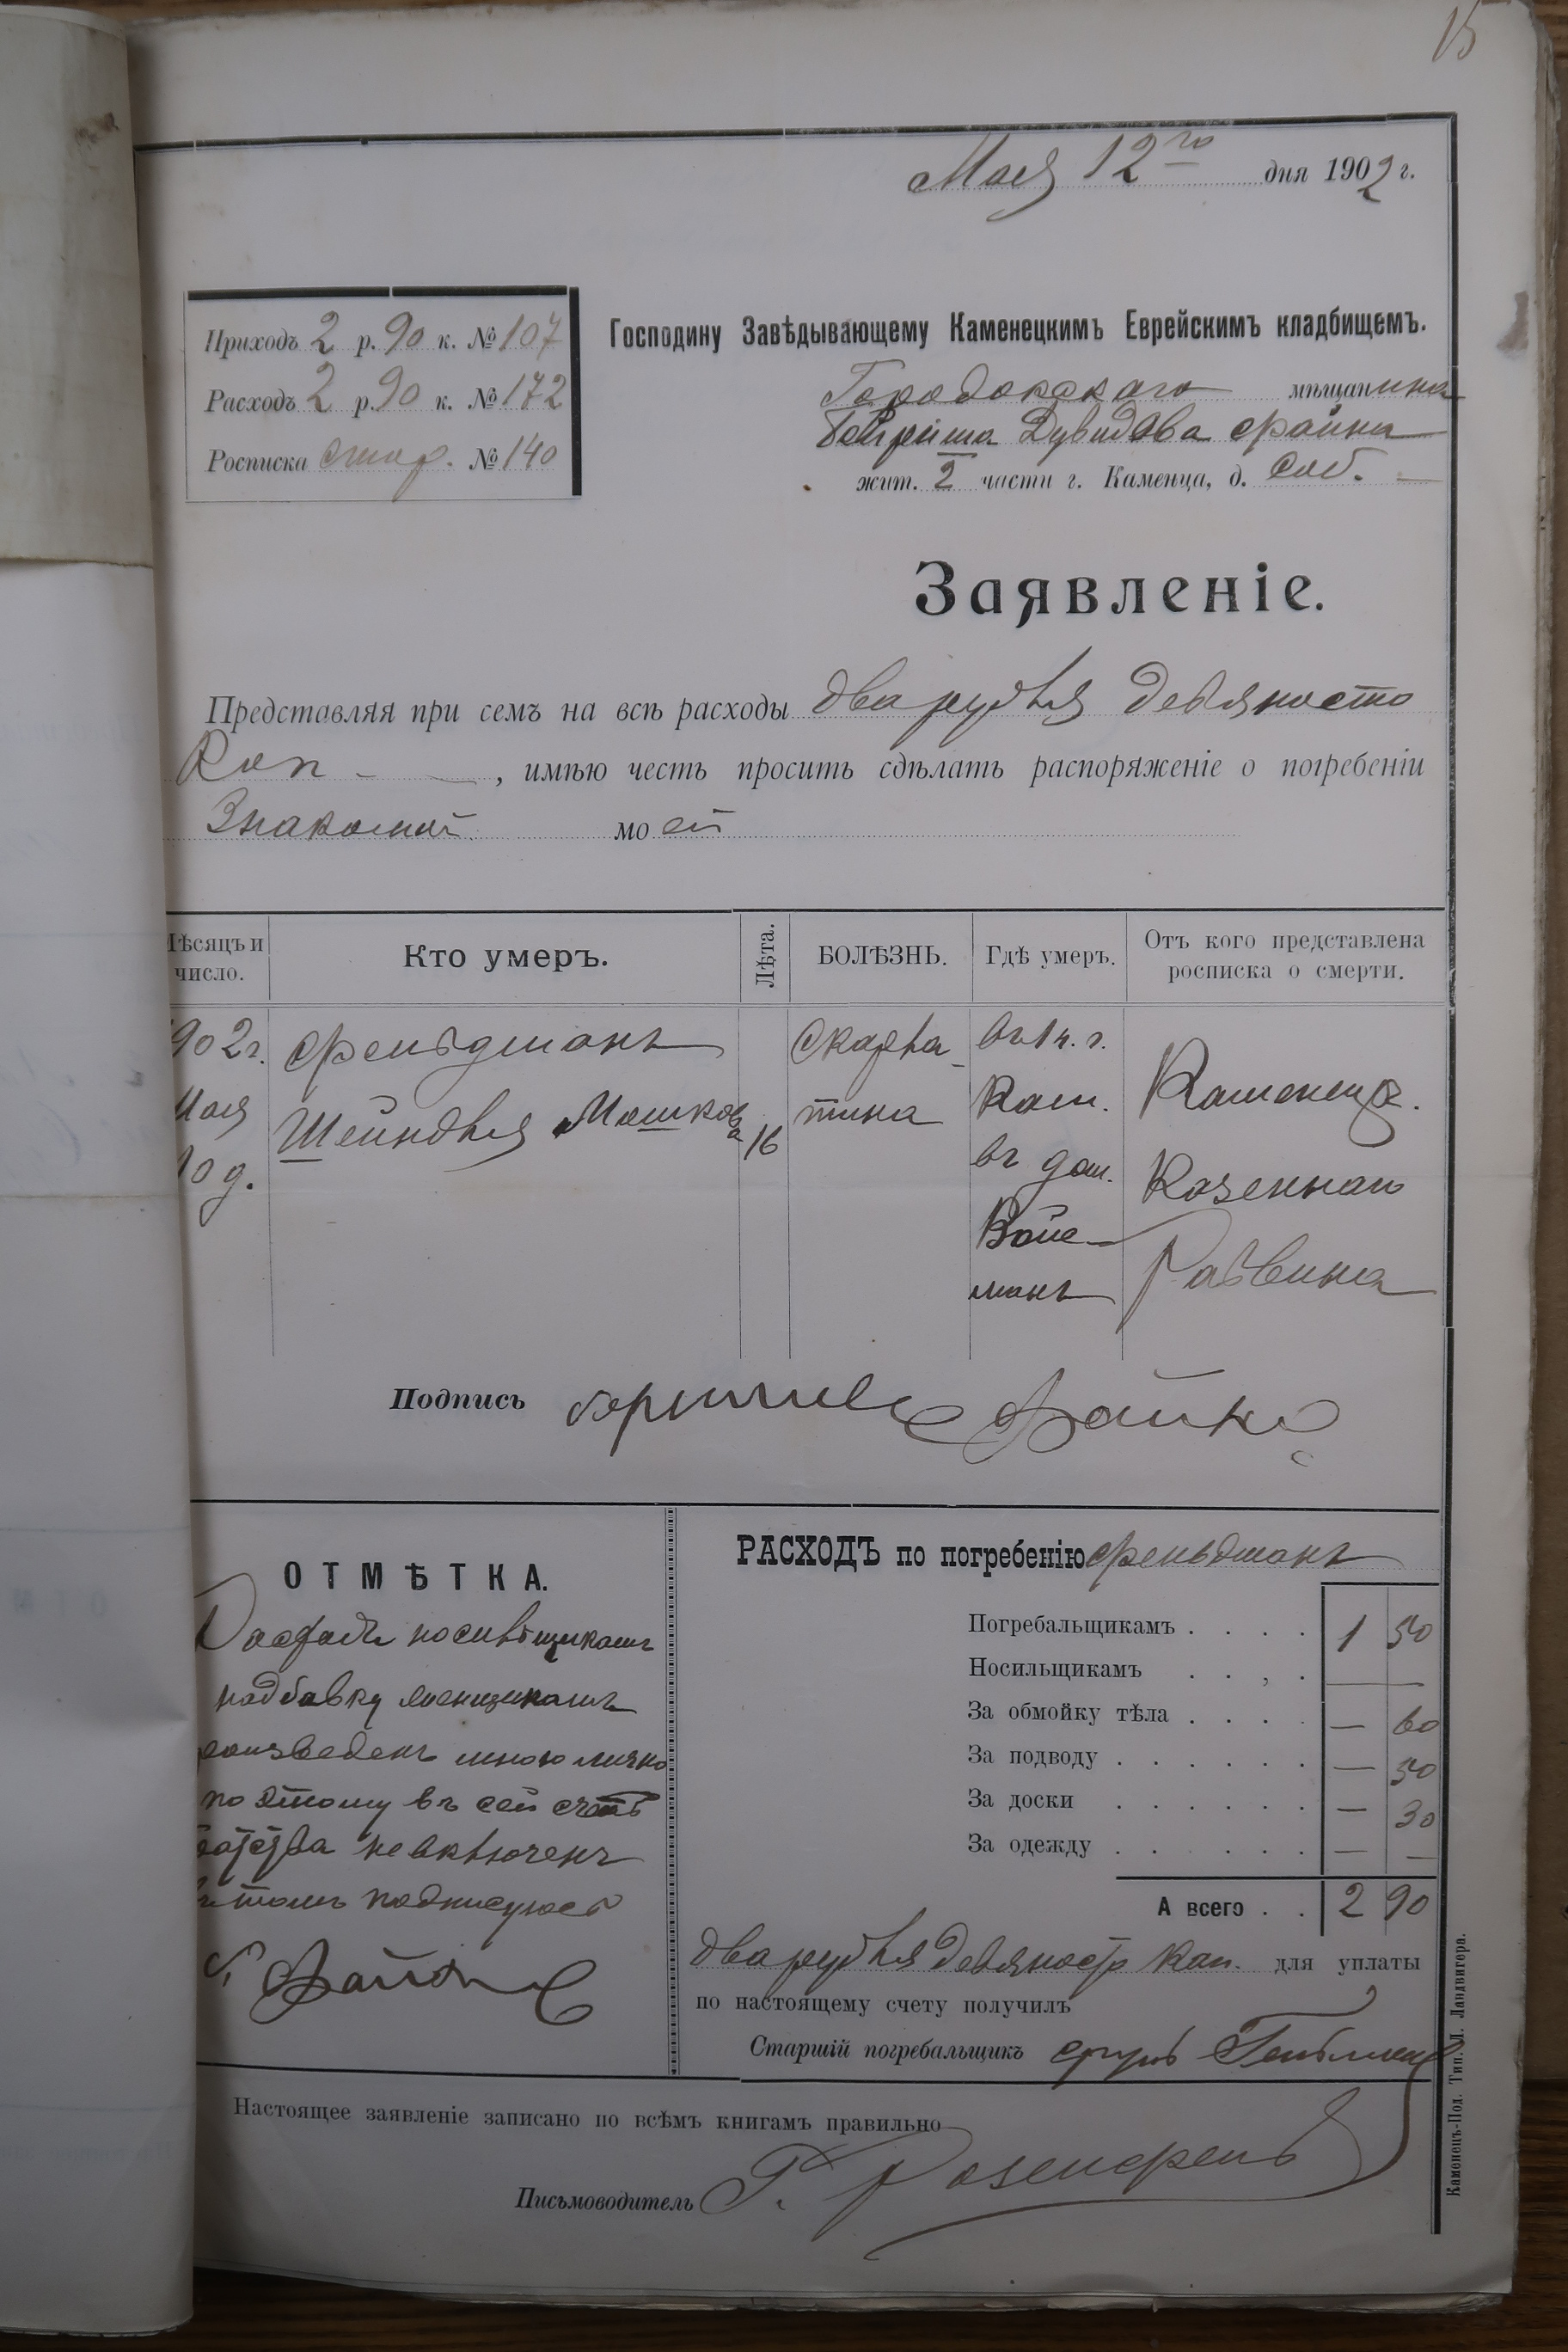 15
Мая 12го дня 1902 г.
Приходъ 2 р. 90 к. № 107
Расходъ 2 р. 90 к. № 172
Росписка стар. № 140
Господину Завѣдывающему Каменецкимъ Еврейскимъ кладбищемъ.
Городокского мѣщанина
Дувидова Файна
жит. 2 части г. Каменца, д. соб.
Заявленіе.
Представляя при семъ на всѣ расходы два рубля девяносто
коп , имѣю честь просить сдѣлать распоряженіе о погребеніи
Знакомой моей
Мѣсяцъ и число.
Кто умеръ.
Лѣта.
БОЛѢЗНЬ.
Гдѣ умеръ.
Отъ кого представлена росписка о смерти.
1902г. Мая 10 д.
Фельдманъ Шейндля Мошкова
16
Скарлатина
въ 1 ч. г. Кам. въ дом. Вайсманъ
Каменецк. Казеннаго Раввина
Подпись Файнъ
ОТМѢТКА.
Расходъ носильщикамъ
надбавку
произведенъ мною лично
по этому въ сей счетъ
расхода не включенъ
въ томъ подписуюсь
РАСХОДЪ по погребенію Фельдманъ
Погребальщикамъ . . . . 1 50
Носильщикамъ . . . . — —
За обмойку тѣла . . . . — 60
За подводу . . . . . . — 50
За доски . . . . . . — 30
За одежду . . . . . . — —
А всего . . 2 90
два рубля девяносто коп. для уплаты
по настоящему счету получилъ
Старшій погребальщикъ
Настоящее заявленіе записано по всѣмъ книгамъ правильно
Письмоводитель Г. Розенфельд
Каменецъ-Под. Тип. Л. Ландвигера.